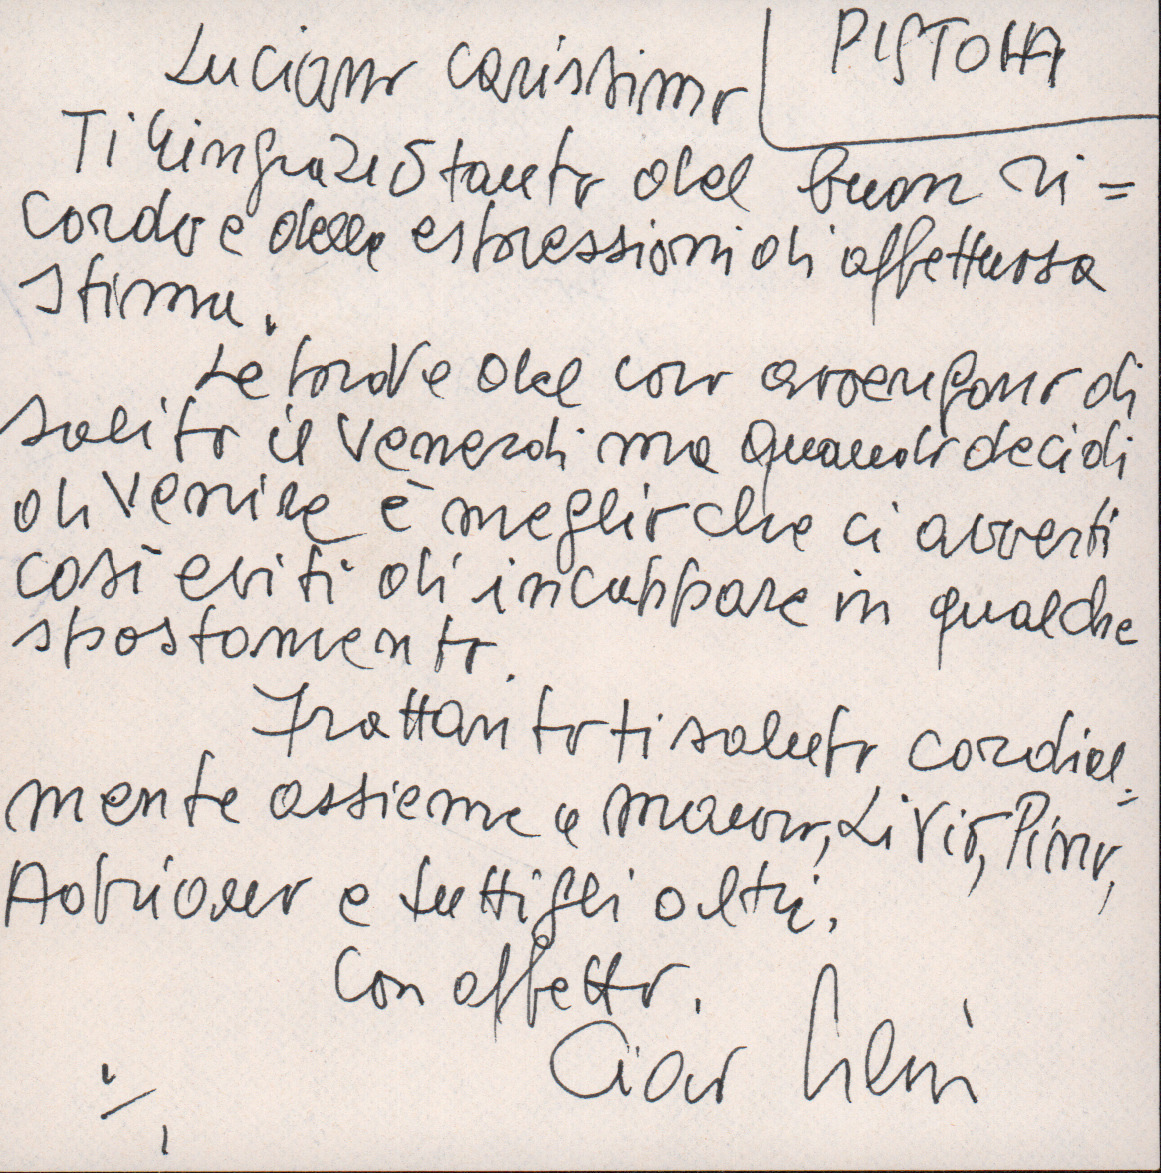 PISTOIA
Luciano carissimo
Ti ringrazio tanto del buon ri=
cordo e delle espressioni di affettuosa
stima.
Le prove del coro avvengono di
solito il Venerdi ma quando decidi
di Venire è meglio che ci avverti
così eviti di incappare in qualche
spostamento.
Frattanto ti saluto cordial=
mente assieme a mauro, Livio, Pino,
Adriano e tutti gli altri.
Con affetto.
Ciao